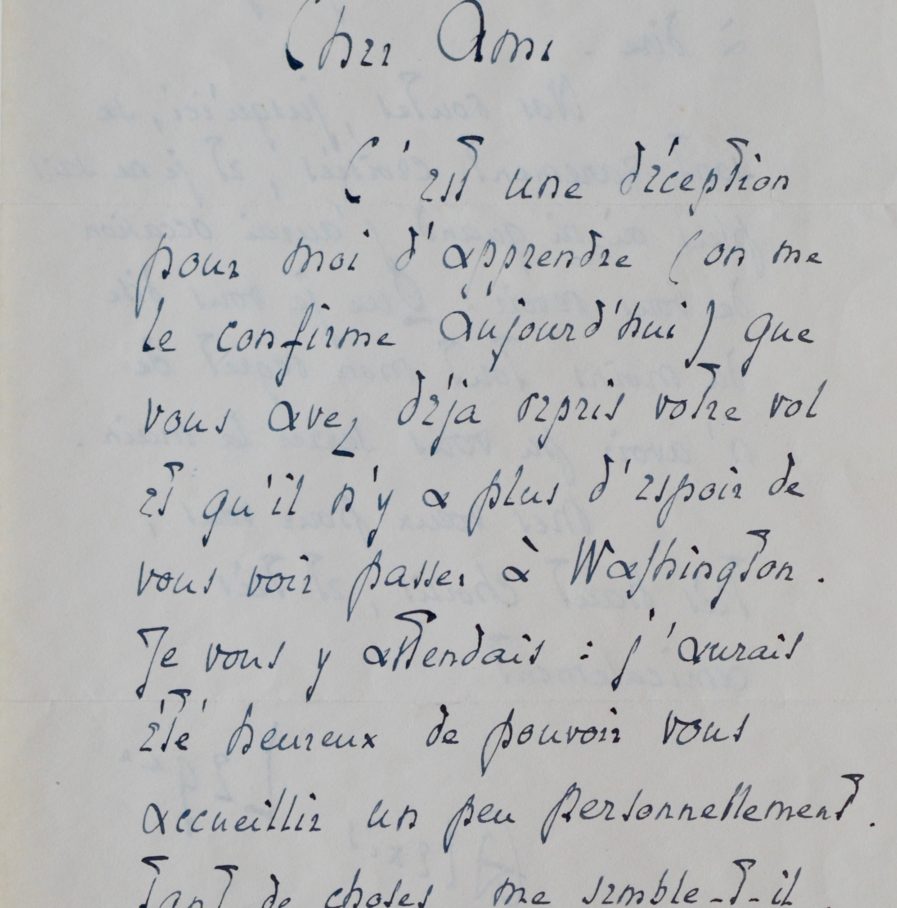 Cher Ami
C'est une déception
pour moi d'apprendre (on me
le confirme aujourd'hui) que
vous avez déjà repris votre vol
et qu'il n'y a plus d'espoir de
vous voir passer à Washington.
Je vous y attendais : j'aurais
été heureux de pouvoir vous
accueillir un peu personnellement.
Tant de choses, me semble-t-il,